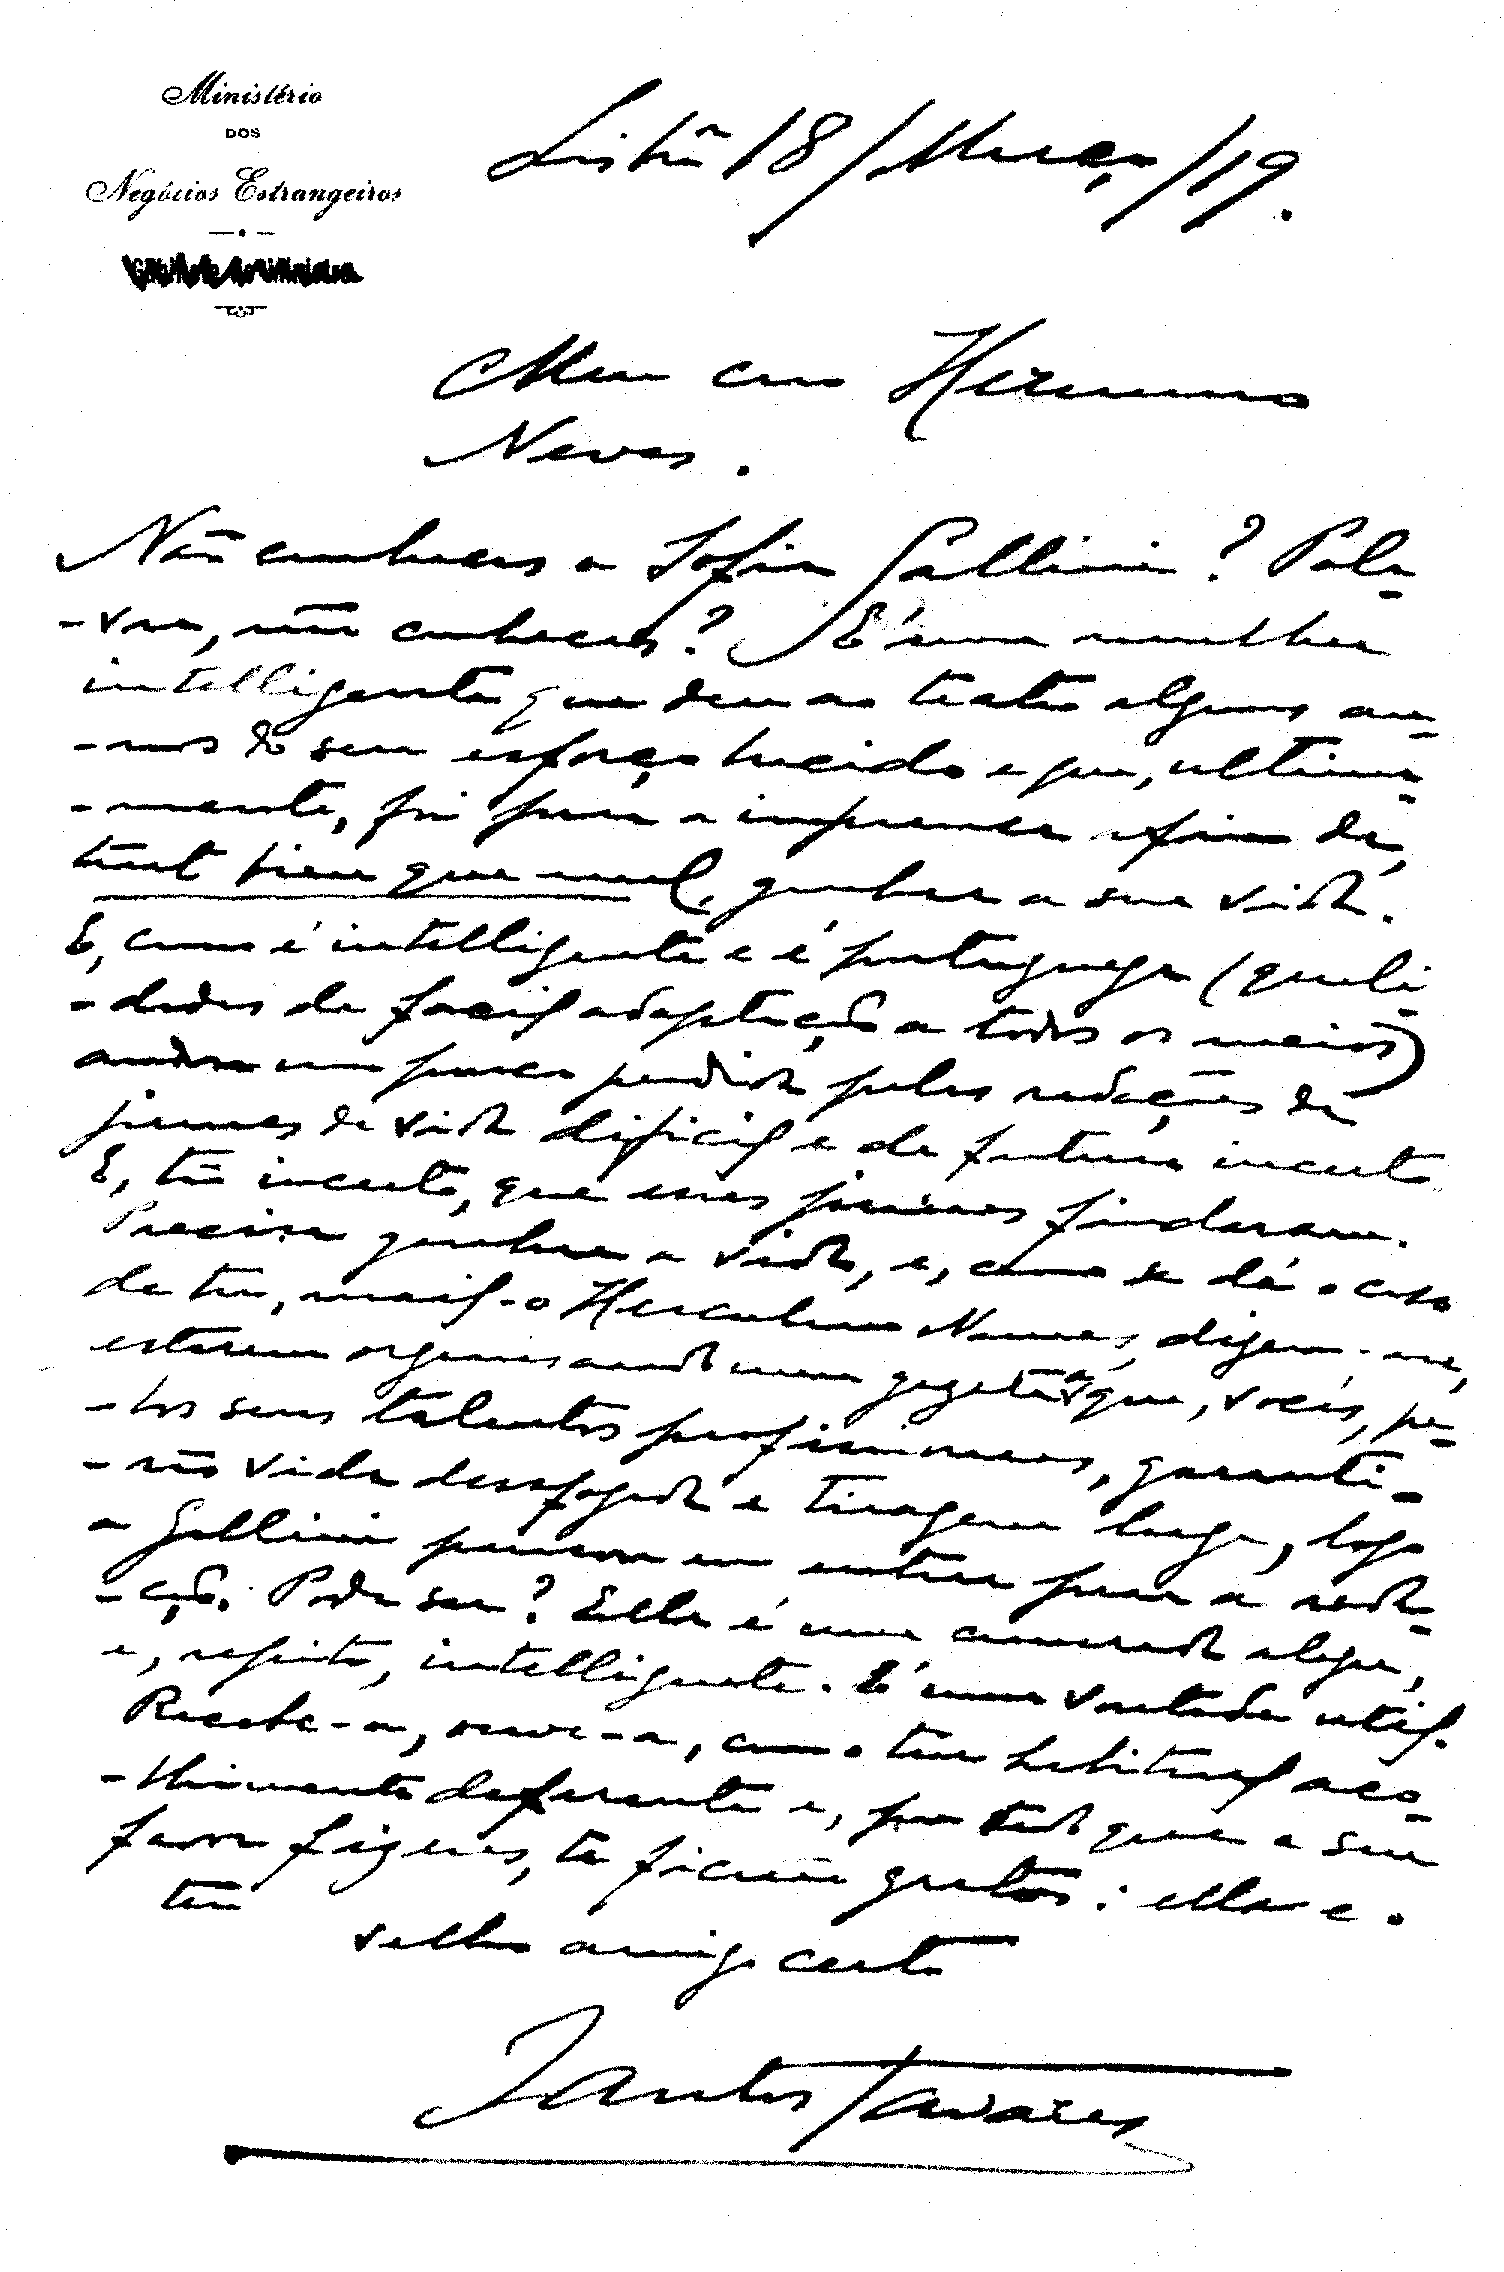 Ministério
DOS
Negócios Estrangeiros
Lisbôa 18/Março/19.
Meu caro Hermano
Neves.
Não conheces a Sofia Gallini? Pala-
-vra, não conheces? É uma mulher
intelligente que deu ao teatro alguns an-
-nos do seu esforço lucido e que, ultima-
-mente, foi para a imprensa afim de,
tant bien que mal, ganhar a sua vida.
E, como é intelligente e é portugueza (quali-
-dades de facil adaptação a todos os meios)
andou um pouco perdida pelas redações de
jornaes de vida dificil e de futuro incerto
E, tão incerto, que esses jornaes findaram.
Precisa ganhar a vida, e, como se dá o caso
de tu, mais o Herculano Nunes, digam-me,
estarem organisando uma gazeta a que, vocês, pe-
-los seus talentos profissionaes, garanti-
-rão vida desafogada e tiragem larga, logo
a Gallini pensou em entrar para a reda-
-ção. Pode ser? Ella é uma camarada alegre,
e, repito, intelligente. É uma vontade util.
Recebe-a, ouve-a, com o teu habitual aco-
-lhimento deferente e, por tudo que a seu
favor fizeres, te ficarão gratos: ella e o
teu
velho amigo certo
Santos Tavares